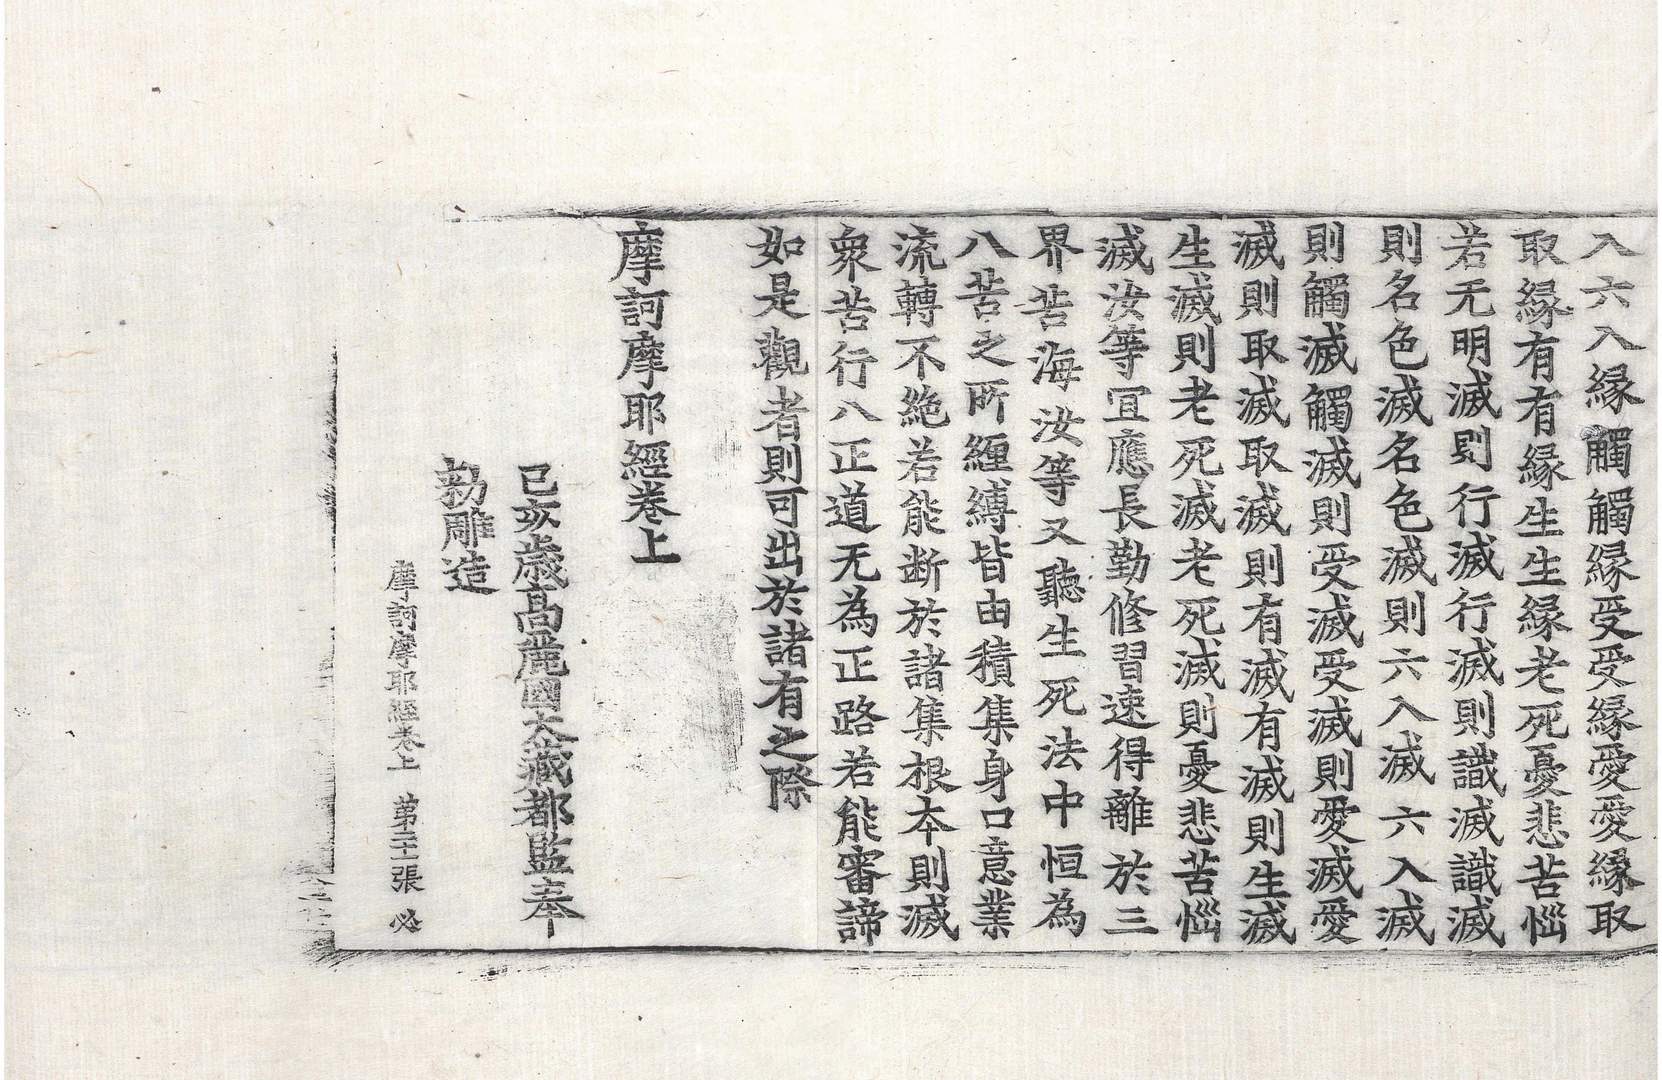 入六入緣觸觸緣受受緣愛愛緣取
取緣有有緣生生緣老死憂悲苦惱
若无明滅則行滅行滅則識滅識滅
則名色滅名色滅則六入滅六入滅
則觸滅觸滅則受滅受滅則愛滅愛
滅則取滅取滅則有滅有滅則生滅
生滅則老死滅老死滅則憂悲苦惱
滅汝等宜應長勤修習速得離於三
界苦海汝等又聽生死法中恒為
八苦之所纏縛皆由積集身口意業
流轉不絶若能断於諸集根本則滅
衆苦行八正道无為正路若能審諦
如是觀者則可出於諸有之際
摩訶摩耶經卷上
己亥歲高麗國大藏都監奉
勑雕造
摩訶摩耶經卷上 第二十二張 必